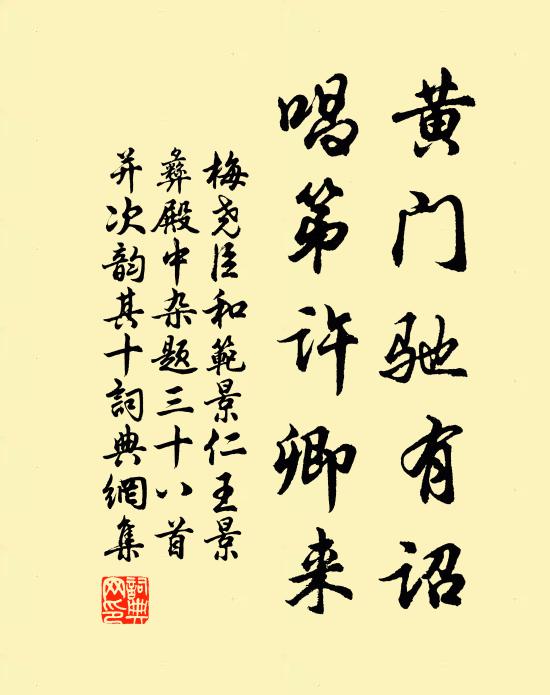 黄门驰有诏
唱第许卿来
梅尧臣和範景仁王景
彝殿中杂题三十八首
并次韵其十詞典網集
詞典網印